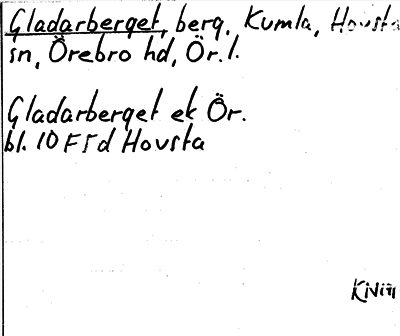 Gladarberget, berg, Kumla, Hovsta
sn, Örebro hd, Ör. l.
Gladarberget ek Ör.
bl. 10 F5d Hovsta